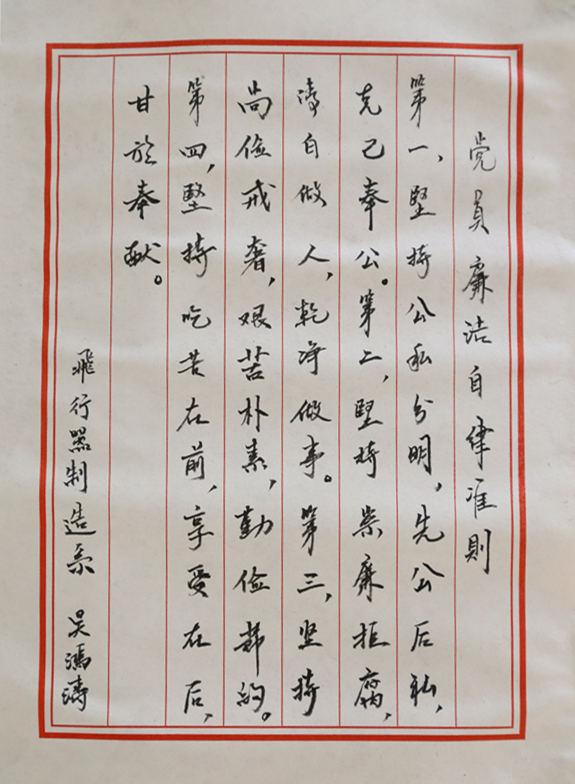 党員廉洁自律准則
第一，堅持公私分明，先公后私，
克己奉公。第二，堅持崇廉拒腐，
清自做人，乾净做事。第三，坚持
尚俭戒奢，艰苦朴素，勤俭節約。
第四，堅持吃苦在前，享受在后，
甘於奉献。
飛行器制造系 吴鴻濤